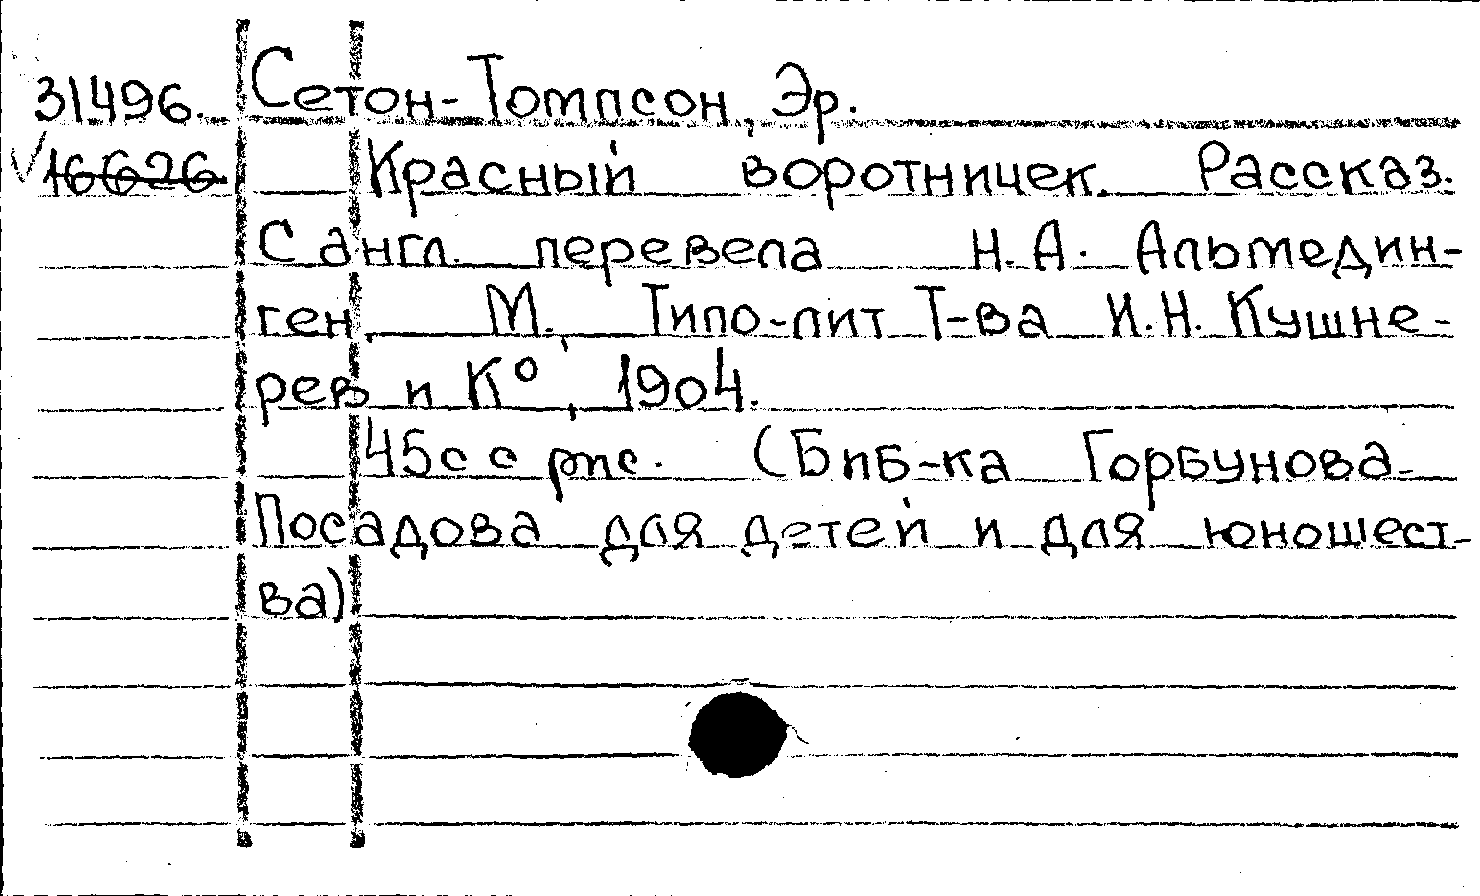 31496. Сетон-Томпсон, Эр.
√ 16626 Красный воротничек. Рассказ.
С англ. перевела Н.А. Альмедин-
ген, М., Типо-лит Т-ва И.Н. Кушне-
рев и К⁰, 1904.
45с с рис. (Биб-ка Горбунова-
Посадова для детей и для юношест-
ва)